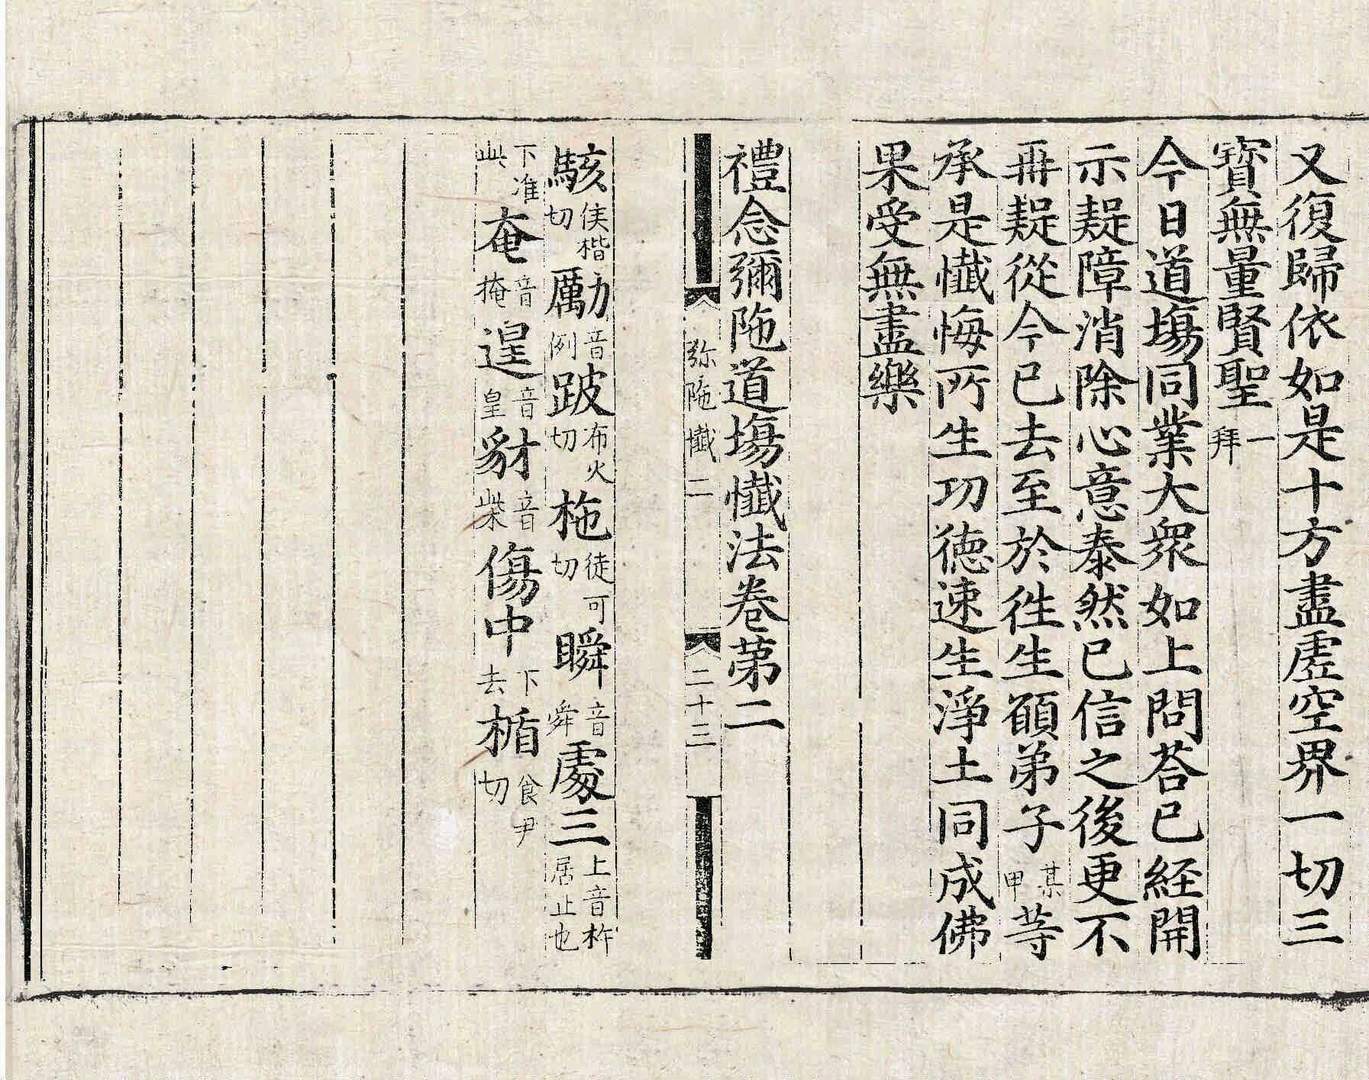 又復歸依如是十方盡虗空界一切三
寶無量賢聖一拜
今日道塲同業大衆如上問荅已經開
示疑障消除心意泰然已信之後更不
再疑從今已去至於徃生願弟子某甲等
承是懺悔所生功德速生淨土同成佛
果受無盡樂
禮念彌陁道塲懺法卷第二
弥陁懺二 二十三
駭侯楷切勵音例跛布火切柂徒可切瞬音舜處三上音杵居止也
下准此奄音掩遑音皇豺音柴傷中下去楯食尹切